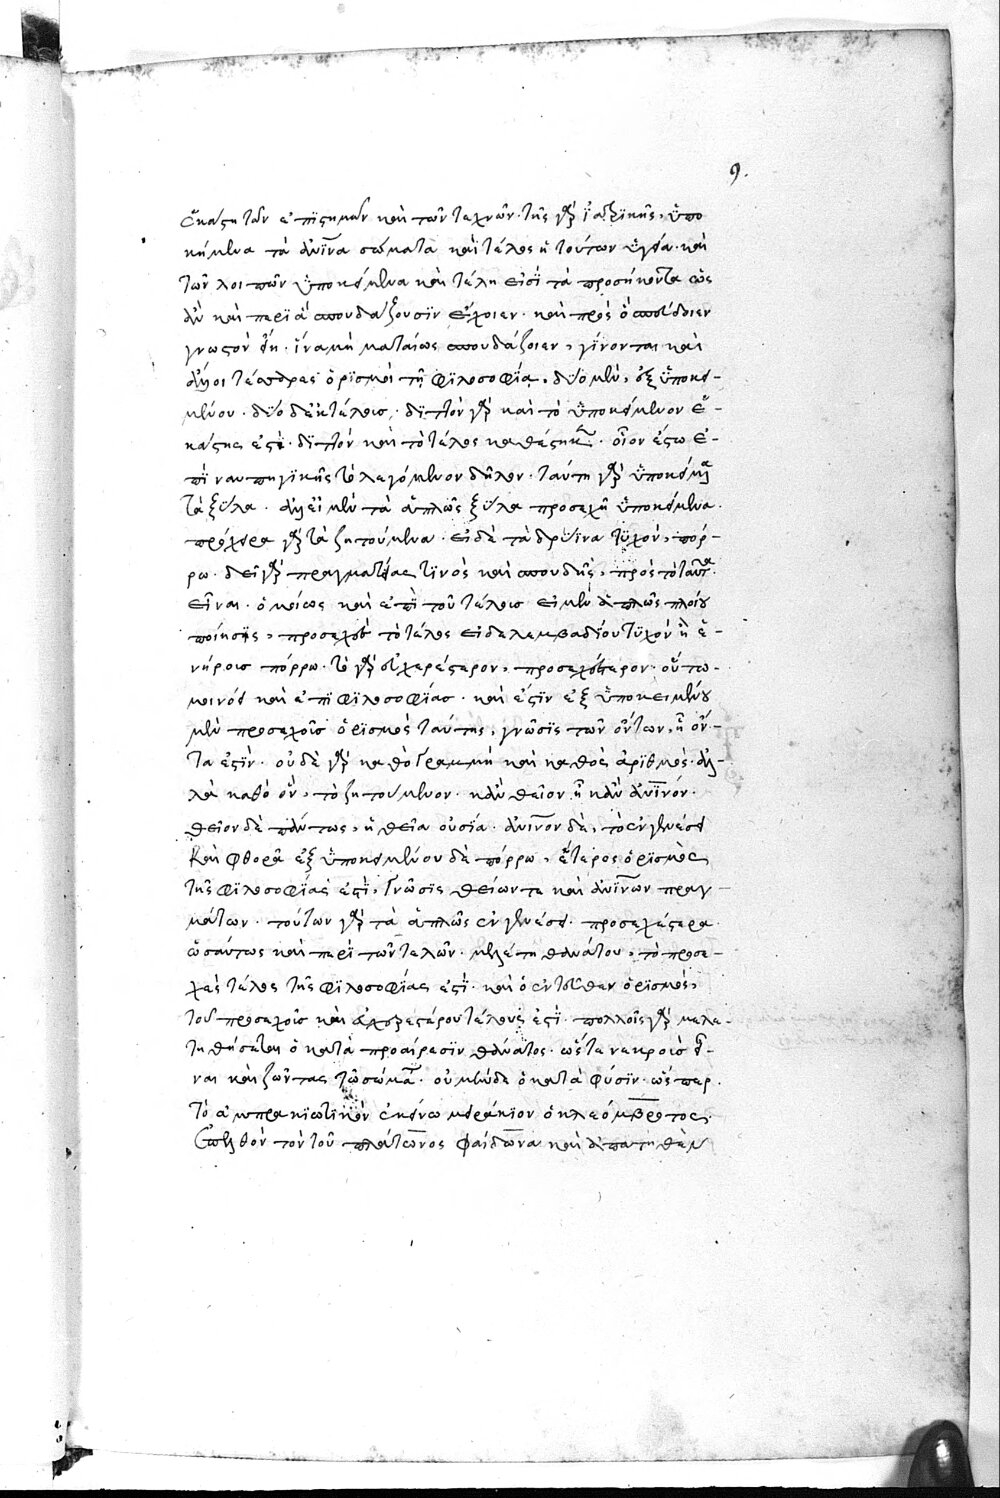 9.
ἑκάστη τῶν ἐπϊστημῶν καὶ τῶν τεχνῶν· τῆς γὰρ ϊατρϊκῆς, ὑπο
κείμενα τὰ ἀνϊνα σώματα καὶ τέλος ἡ τούτων ὑγεία· καὶ
τῶν λοιπῶν ὑποκείμενα καὶ τέλη εἰσϊ τὰ προσήκοντα ὡς
ἂν καὶ περϊ ἃ σπουδάζουσϊν ἔχοιεν· καὶ πρὸς ὃ σπεύδοιεν
γνωστὸν εἴη· ἵνα μὴ ματαίως σπουδάζοιεν, γίνονται καὶ
ἄλλοι τέσσαρες ὁρϊσμοὶ τῆς φϊλοσοφίας, δύο μὲν, ἐξ ὑποκει-
μένου· δύο δὲ ἐκ τέλους· δϊττὸν γὰρ καὶ τὸ ὑποκείμενον ἑ-
κάστης ἐστὶ· δϊττὸν καὶ τὸ τέλος καθέστηκεν· οἷον ἔστω ἐ-
πὶ ναυπηγϊκῆς τὸ λεγόμενον δῆλον· ταύτη γὰρ ὑποκείμενα
τὰ ξύλα· ἀλλ' εἰ μὲν τὰ ἁπλῶς ξύλα προσεχῆ ὑποκείμενα·
πρόχειρα γὰρ τὰ ζητούμενα· εἰ δὲ τὰ δρύϊνα τυχὸν, πόρ-
ρω· δεῖ γὰρ πραγματείας τϊνὸς καὶ σπουδῆς, πρὸς τὸ ταῦτα
εἶναι· ὁμοίως καὶ ἐπὶ τοῦ τέλους εἰ μὲν ἁπλῶς πλοίου
ποίησϊς, προσεχὲς τὸ τέλος εἰ δὲ λεμβαδίου τυχὸν ἢ ἑ-
νήρους πόρρω· τὸ γὰρ εὐχερέστερον, προσεχέστερον· οὕτω
μοι νόει καὶ ἐπὶ φϊλοσοφίας· καὶ ἔστϊν ἐξ ὑποκειμένου
μὲν προσεχοῦς ὁρϊσμὸς ταύτης, γνῶσϊς τῶν ὄντων, ἧ ὄν-
τα ἐστϊν· οὐδὲ γὰρ καθὸ γραμμὴ καὶ καθὸ ἀρϊθμὸς· ἀλ-
λὰ καθὸ ὂν, τὸ ζητούμενον· κἂν θεῖον ἢ κἂν ἀνϊνόν·
θεῖον δὲ πάντως, ἡ θεῖα οὐσία· ἀνϊνον δὲ, τὸ ἐν γενέσει
καὶ φθορᾶ ἐξ ὑποκειμένου δὲ πόρρω, ἕτερος ὁρϊσμὸς
τῆς φϊλοσοφίας ἐστὶ, γνῶσϊς θείων τε καὶ ἀνϊνων πραγ-
μάτων· τούτων γὰρ τὰ ἁπλῶς ἐν γενέσει· προσεχέστερα·
ὡσαύτως καὶ περϊ τῶν τελῶν· μελέτη θανάτου, τὸ προσε-
χὲς τέλος τῆς φϊλοσοφίας ἐστὶ· καὶ ὁ ἐντεῦθεν ὁρϊσμὸς,
τοῦ προσεχοῦς καὶ εὐχερεστέρου τέλους ἐστὶ· πολλοῖς γὰρ μελε-
τηθήσεται ὁ κατὰ προαίρεσϊν θάνατος· ὥστε νεκροὺς εἶ-
ναι καὶ ζῶντας τῶ σώματι· οὐ μὴν δὲ ὁ κατὰ φύσϊν· ὥσπερ
τὸ ἀμπρακϊωτϊκὸν ἐκεῖνο μειράκϊον ὁ κλεόμβροτος·
ἐπελθὸν τὸν τοῦ πλάτωνος φαίδωνα καὶ ἀπατηθὲν